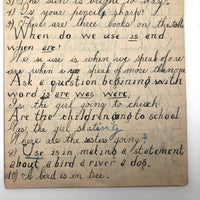 3) The sun is bright to day.
4) Is your pencil sharp?
5) There are three books on the table
When do we use is and
when are?
We use is when we speak of one
are when we speak of more then one
Ask a question begining with
word is are was were.
Is the girl going to church
Are the children going to school
Was the girl skating
Were are the sisters going?
2) Use is in making a statement
about a bird a river a dog.
10) A bird is in tree.